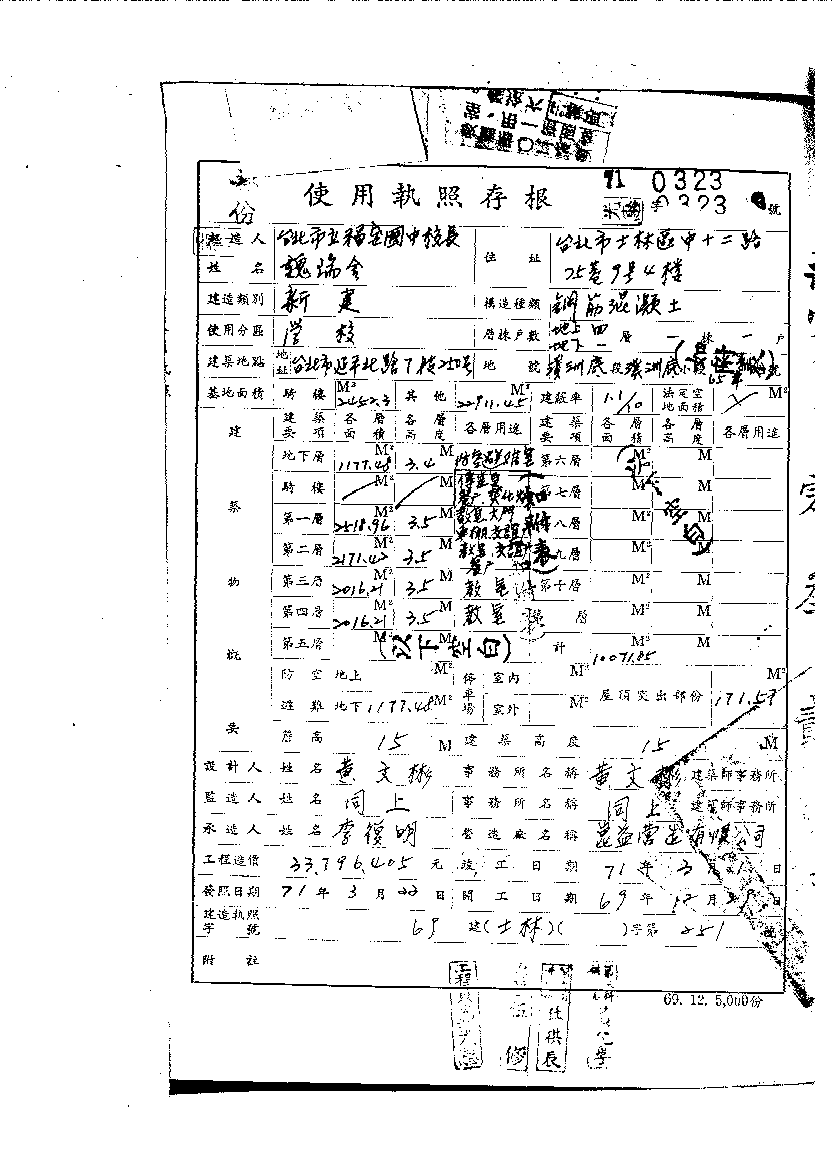 份
使用執照存根
71 0323
字 0323 號
起造人 台北市立福安國中校長
姓名 魏瑞
住址 台北市士林區中十二路
25巷9号4樓
建造類別 新建
構造種類 鋼筋混凝土
使用分區 学校
層棟戶數 地上四 地下一 層 一 棟 一 戶
建築地點 地址 台北市延平北路7段250号
地號 溪洲底段溪洲底小段
基地面積 騎樓 2452.3 M² 其他 22911.45 M² 建蔽率 1.1/10 法定空地面積 M²
建築物概要
建築要項 各層面積 各層高度 各層用途 建築要項 各層面積 各層高度 各層用途
地下層 1177.48 M² 3.4 M 第六層 M² M
騎樓 M² M 第七層 M² M
第一層 2518.96 M² 3.5 M 教室 第八層 M² M
第二層 2171.42 M² 3.5 M 教室 第九層 M² M
第三層 2016.21 M² 3.5 M 教室 第十層 M² M
第四層 2016.21 M² 3.5 M 教室 層 M² M
第五層 M² M (以下空白) 計 10071.85 M² M
(以下空白)
防空避難 地上 M² 停車場 室內 M² 屋頂突出部份 171.57 M²
地下 1177.48 M² 室外 M²
簷高 15 M 建築高度 15 M
設計人 姓名 黃文彬 事務所名稱 黃文彬 建築師事務所
監造人 姓名 同上 事務所名稱 同上 建築師事務所
承造人 姓名 李復明 營造廠名稱 益營造有限公司
工程造價 33,796,405 元 竣工日期 71年3月1日
發照日期 71年3月22日 開工日期 69年12月29日
建造執照字號 69 建(士林)( )字第 251 號
附註
69. 12. 5,000份